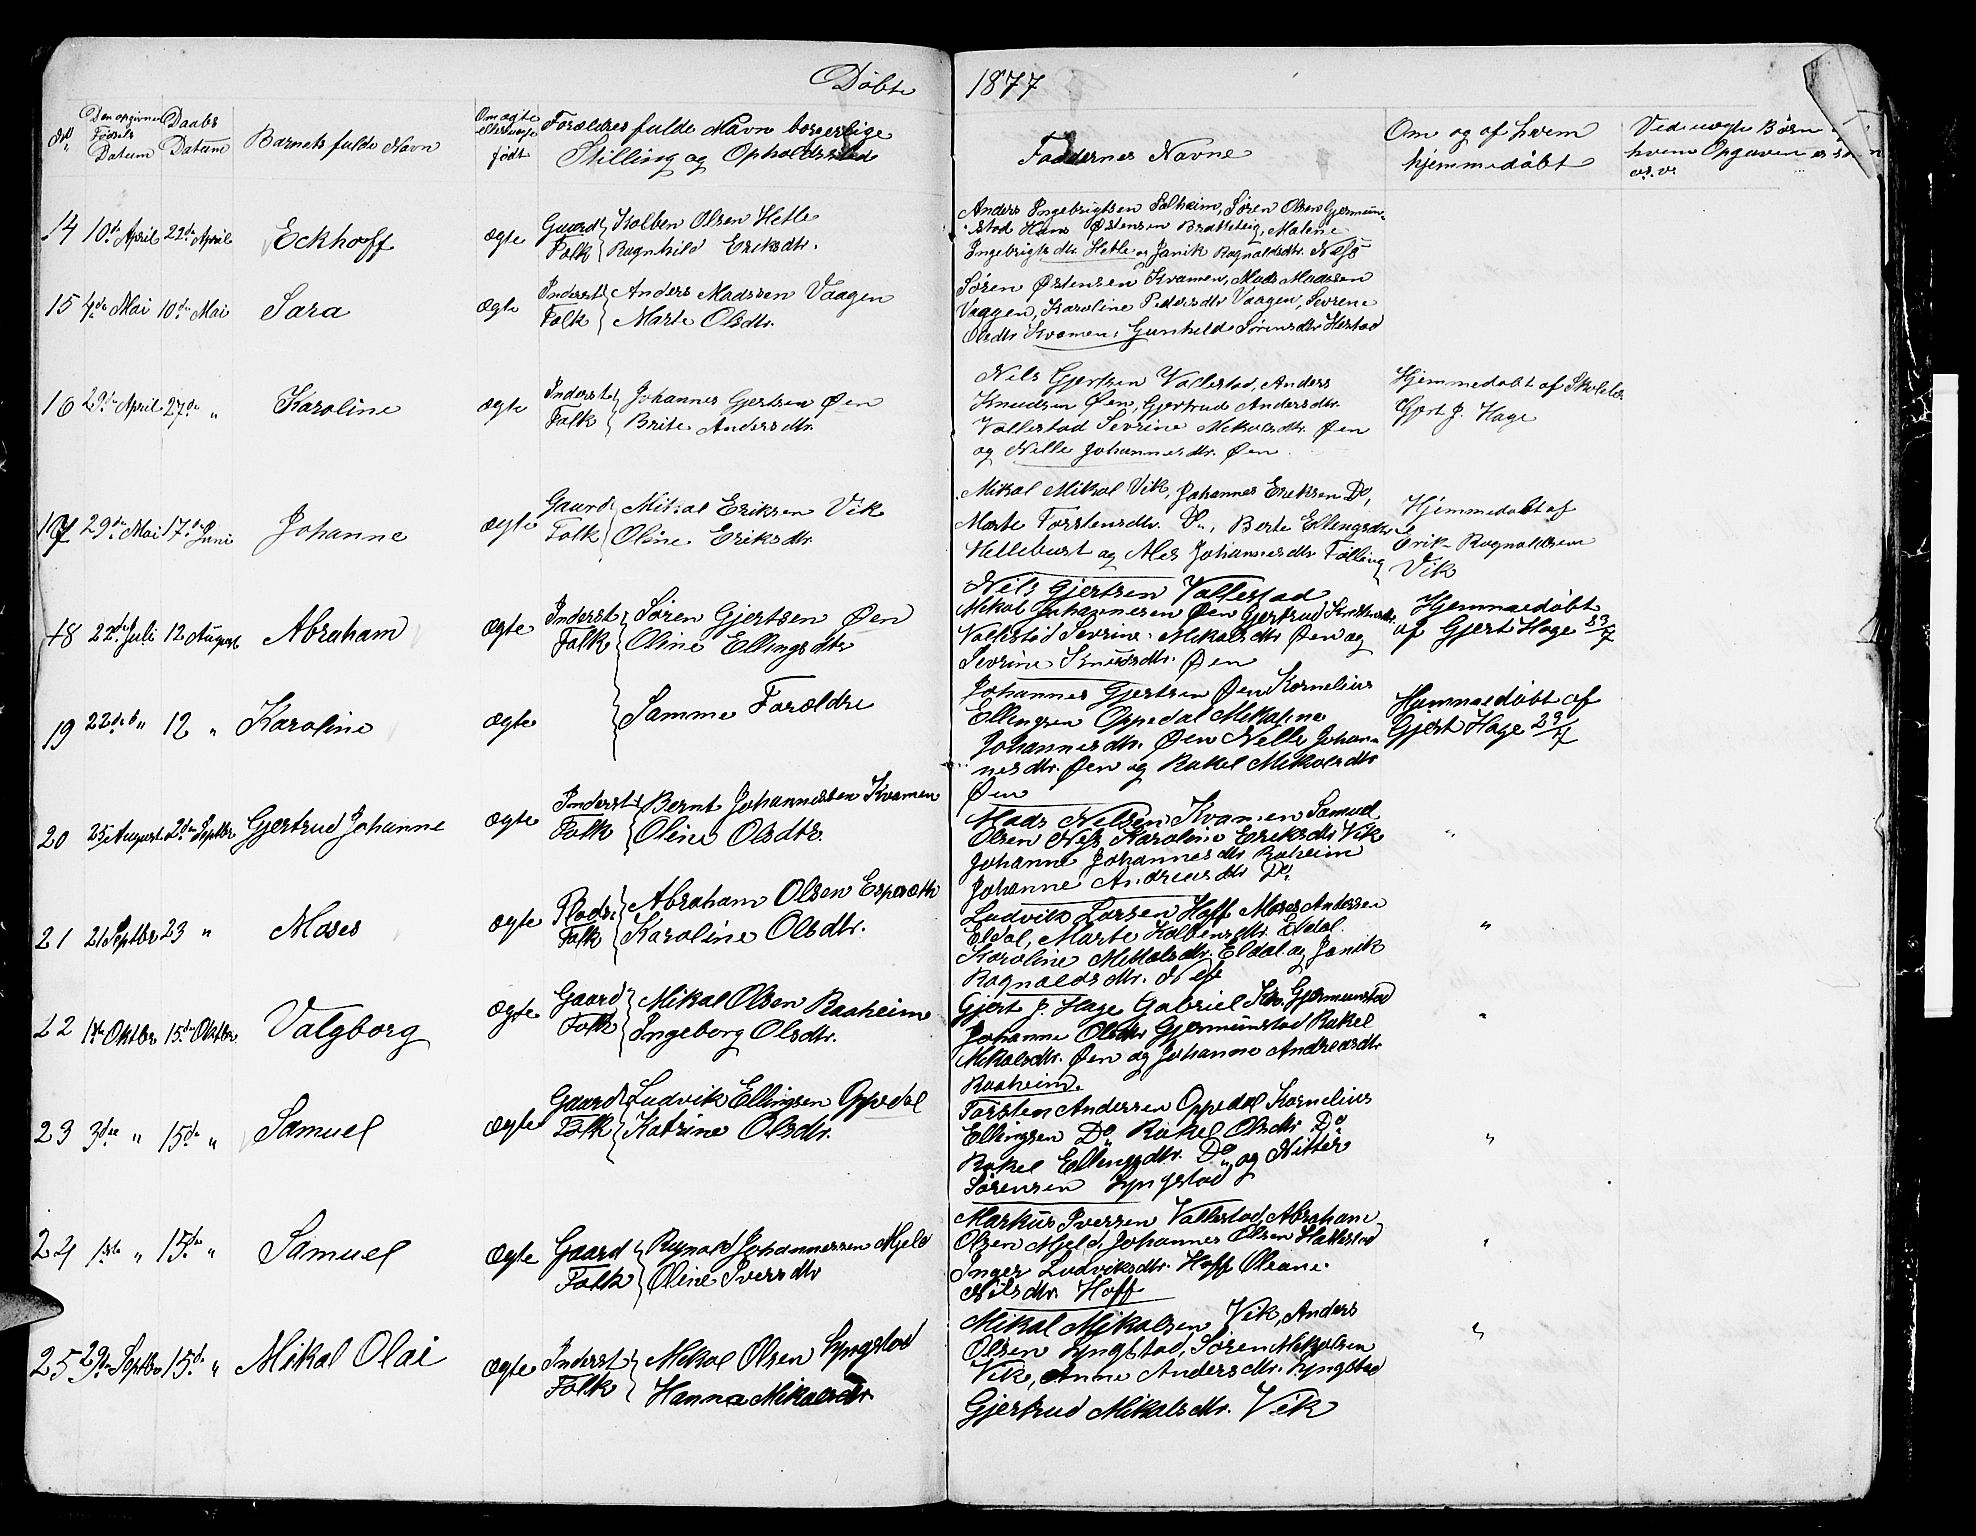 Døbte 1877
No
Den opgivne Fødsels Datum
Daabs Datum
Barnets fulde Navn
Om ægte eller uægte født
Forældres fulde Navn borgerlige
Stilling og Opholdssted
Faddernes Navne
Om og af hvem
hjemmedøbt
Ved uægte Børn
hvem Opgaven er
o.s.v.
14 10de April 22de April Eckhoff ægte Gaard Folk Kolben Olsen Hetle
Ragnhild Eriksdtr.
Anders Ingebrigtsen Solheim, Søren Olsen Gjermun-
stad Hans Østensen Brattteig, Malene
Ingebrigtsdtr. Hetle og Janik Ragnaldsdtr. Nes
15 4de Mai 10de Mai Sara ægte Inderst Folk Anders Madssen Vaagen
Marte Olsdtr.
Søren Østensen Kvamen, Mads Madssen
Vaagen, Karoline Pedersdtr Vaagen, Sevrene
Olsdtr Kvamen, Gunhild Sørensdtr Hestad
16 29de April 27de " Karoline ægte Inderst Folk Johannes Gjertsen Øen
Brite Andersdtr.
Nils Gjertsen Vallestad, Anders
Knudsen Øen, Gjertrud Andersdtr.
Vallestad Sevrine Mikalsdtr. Øen
og Nille Johannesdtr. Øen
Hjemmedøbt af Skolelæ
Gjert J. Hage
17 29de Mai 17de Juni Johanne ægte Gaard Folk Mikal Eriksen Vik
Oline Eriksdtr
Mikal Mikal Vik, Johannes Eriksen Do,
Marte Torstensdtr. Do., Berte Ellingsdtr
Hetleburt og Ales Johannesdtr. Følling
Hjemmedøbt af
Erik Ragnaldsen
Vik
18 22de Juli 12 August Abraham ægte Inderst Folk Søren Gjertsen Øen
Oline Ellingsdtr
Nils Gjertsen Vallestad
Mikal Johannesen Øen Gjertrud
Vallestad Sevrine Mikalsdtr Øen og
Sevrine Knudsdtr. Øen
Hjemmedøbt
af Gjert Hage 23/7
19 22de " 12 " Karoline ægte Samme Forældre
Johannes Gjertsen Øen Kornelius
Ellingsen Oppedal Mikaline
Johannesdtr. Øen Nille Johan-
nesdtr. Øen og Rakel Mikalsdtr
Øen
Hjemmedøbt af
Gjert Hage 29/7
20 25 August 2den Septbr Gjertrud Johanne ægte Inderst Folk Bernt Johannessen Kvamen
Oline Olsdtr.
Mads Nilsen Kvamen Samuel
Olsen Nes Karoline Eriksdtr Vik
Johanne Johannesdtr Raaheim
Johanne Andreasdtr Do.
"
21 21 Septbr 23 " Moses ægte Plads Folk Abraham Olsen Espesæth
Karoline Olsdtr.
Ludvik Larsen Hoff Moses Andersen
Eldal, Marte Kolbensdtr. Eldal
Karoline Mikkalsdtr. Eldal og Janik
Ragnaldsdtr. Nes
"
22 1ste Oktbr 15de Oktbr Valgborg ægte Gaard Folk Mikal Olsen Raaheim
Ingeborg Olsdtr.
Gjert J. Hage Gabriel Kr. Gjermunstad
Johanne Olsdtr Gjermunstad Rakel
Mikalsdtr. Øen og Johanne Andreasdtr
Raaheim.
"
23 3die " 15de " Samuel ægte Gaard Folk Ludvik Ellingsen Oppedal
Katrine Olsdtr.
Torsten Andersen Oppedal Kornelius
Ellingsen Do Rakel Olsdtr Do
Rakel Ellingsdtr. Do og Nitter
Sørensen Lyngstad
"
24 1ste " 15de " Samuel ægte Gaard Folk Ragnald Johannessen Mjeld
Oline Iversdtr
Markus Iversen Vallestad, Abraham
Olsen Mjeld, Johannes Olsen Hatlestad
Inger Ludviksdtr. Hoff Oleane
Nilsdtr. Hoff
"
25 29de Septbr 15de " Mikal Olai ægte Inderst Folk Mikal Olsen Lyngstad
Hanna Mikalsdtr
Mikal Mikalsen Vik, Anders
Olsen Lyngstad, Søren Mikalsen
Vik, Anne Andersdtr. Lyngstad
Gjertrud Mikalsdtr. Vik
"